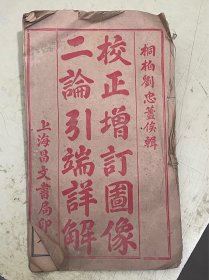 桐柏劉忠蓋侯輯
校正增訂圖像
二論引端詳解
上海昌文書局印